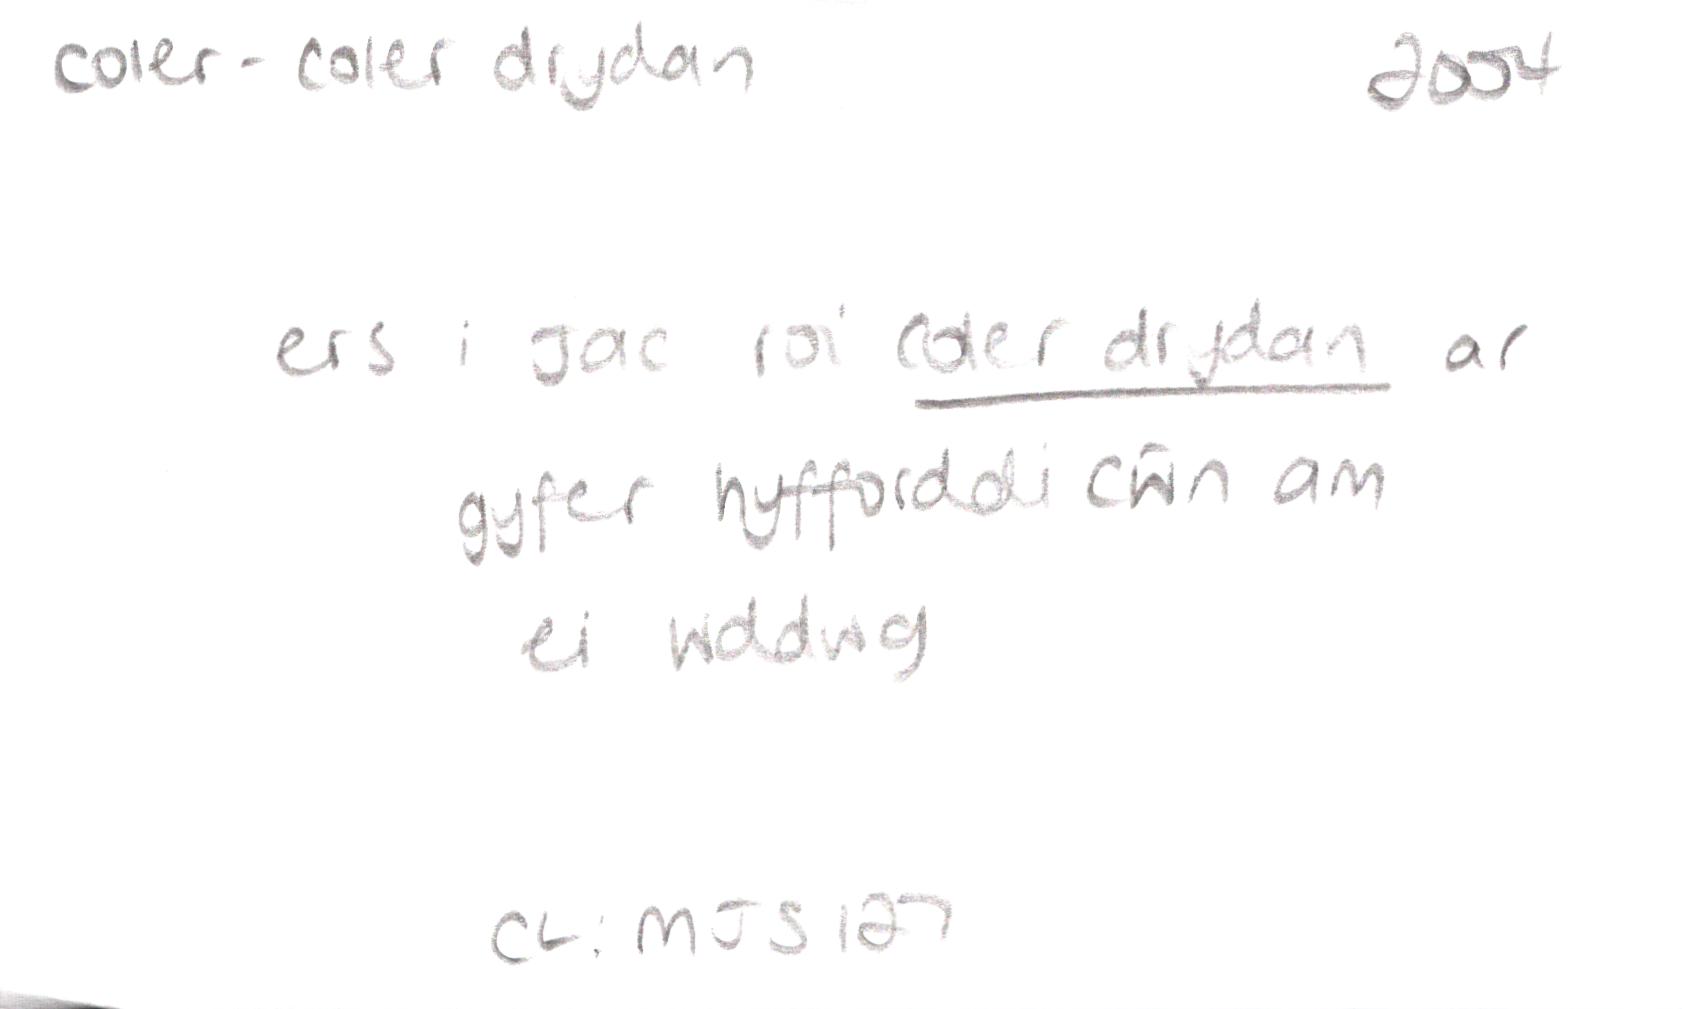 coler - coler drydan 2004
ers i Jac roi coler drydan ar
gyfer hyfforddi cŵn am
ei wddwg
CL: MJS 127